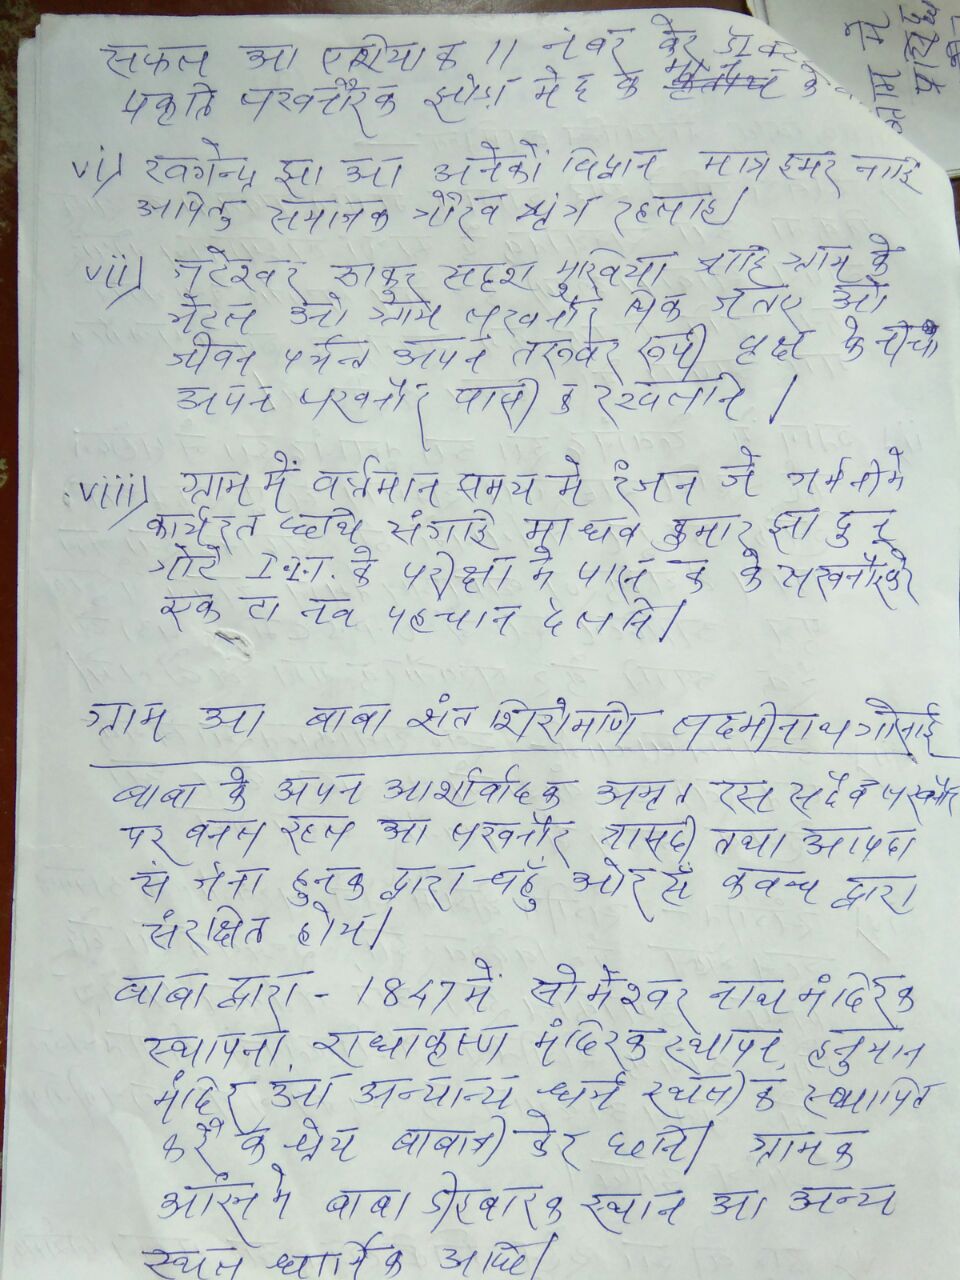 सफल आ एशिया क 11 नंबर केर
प्रकृति लखनौरक झोपा मे द के
vi) खगेन्द्र झा आ अनेकों विद्वान मात्र हमर नहि
अपितु समाजक गौरव श्रृंग रहलाह।
vii) जटेश्वर ठाकुर सदृश मुखिया जाहि ग्राम के
भेटल ओ ग्राम लखनौर थिक जतए ओ
जीवन पर्यन्त अपन तरूवर रूपी वृक्ष के नीचाँ
अपन लखनौर वासी के रखलनि।
viii) ग्राम में वर्तमान समय मे रंजन जे जर्मनी मे
कार्यरत छथि संगहि माधव कुमार झा दुनू
गोटे I.I.T. के परीक्षा मे पास क के लखनौर के
एक टा नव पहचान देलनि।
ग्राम आ बाबा संत शिरोमणि लक्ष्मीनाथ गोसाई
बाबा के अपन आर्शीर्वादक अमृत रस सदैव लखनौर
पर बनल रहल आ लखनौर त्रासदी तथा आपदा
सं जेना हुनक द्वारा चहुँ ओर सँ कवच द्वारा
संरक्षित होय।
बाबा द्वारा - 1847 में सोमेश्वर नाथ मंदिरक
स्थापना, राधाकृष्ण मंदिरक स्थापन, हनुमान
मंदिर आ अन्यान्य धर्म स्थली क स्थापित
करै के श्रेय बाबाजी केर छनि। ग्रामक
स्थान आ अन्य
स्थल धार्मिक अछि।